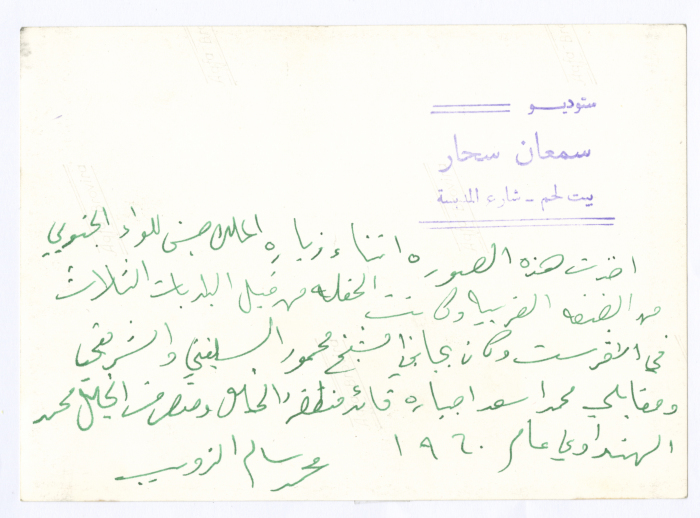 ستوديو
سمعان سحار
بيت لحم - شارع المدبسة
اخذت هذه الصوره اثناء زياره الملك حسين للواء الجنوبي
من الضفه الغربيه وكانت الحفله من قبل البلديات الثلاث
في وكان بجانبي الشيخ محمود السلفيتي والشريقي
ومقابلي محمد اسعد اجباره قائد منطقه الخليل ومتصرف الخليل محمد
الهنداوي عام ١٩٦٠ محمد سالم الزويب